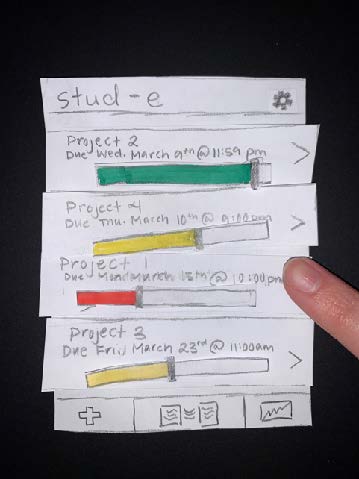 stud-e
Project 2
Due Wed. March 9th @ 11:59 pm
Project 4
Due Thu. March 10th @ 9:00pm
Project 1
Due Mond March @ 10:00pm
Project 3
Due Fri, March 23rd @ 11:00am